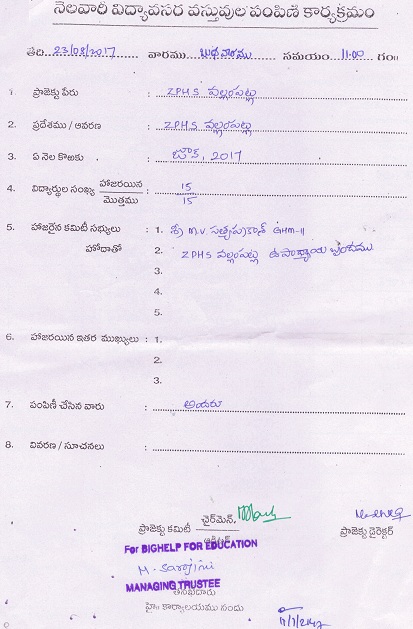 నెలవారీ విద్యావసర వస్తువుల పంపిణి కార్యక్రమం
తేది 23/08/2017 వారము బుధవారము సమయం 11.00 గం॥
1. ప్రాజెక్టు పేరు : ZPHS వల్లంపట్ల
2. ప్రదేశము / ఆవరణ : ZPHS వల్లంపట్ల
3. ఏ నెల కొఱకు : జూన్, 2017
4. విద్యార్థుల సంఖ్య హాజరయిన : 15
మొత్తము 15
5. హాజరైన కమిటీ సభ్యులు : 1. శ్రీ M.V సత్యప్రకాశ్ GHM-II
హోదాతో 2. ZPHS వల్లంపట్ల ఉపాధ్యాయ బృందము
3.
4.
5.
6. హాజరయిన ఇతర ముఖ్యులు : 1.
2.
3.
7. పంపిణీ చేసిన వారు : అందరు
8. వివరణ / సూచనలు :
ప్రాజెక్టు కమిటీ చైర్‌మెన్, ప్రాజెక్టు డైరెక్టర్
For BIGHELP FOR EDUCATION
M. Sarojini
MANAGING TRUSTEE
హై॥ కార్యాలయము నందు